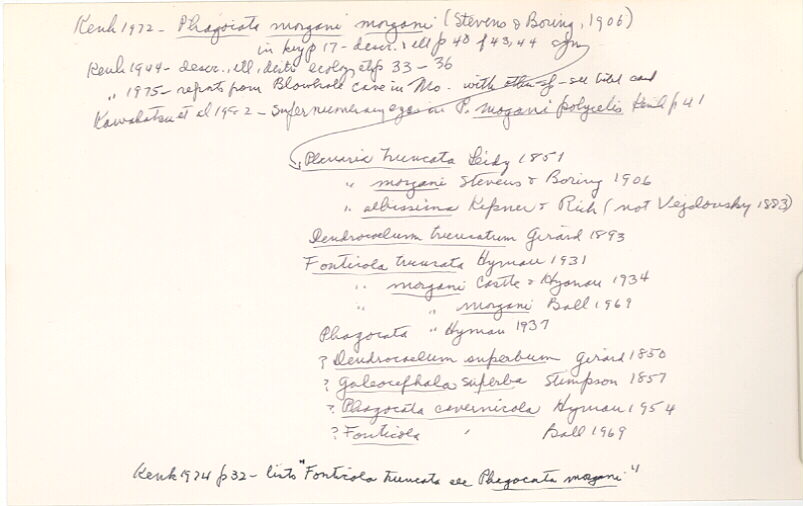 Kenk 1972 - Phagocata morgani morgani (Stevens & Boring, 1906)
in key p 17 - descr. & ill p 40 f 43, 44
Kenk 1944 - descr., ill, distr ecology, etc p 33 - 36
" 1975 - reports from Blowhole cave in Mo. with - see bibl card
Kawakatsu et al 1982 - Supernumerary eyes in P. mogani polycelis Kenk p 41
Planaria truncata Leidy 1851
" morgani Stevens & Boring 1906
" albissima Kepner & Rich (not Vejdovsky 1883)
Dendrocoelum truncatum Girard 1893
Fonticola truncata Hyman 1931
" morgani Castle & Hyman 1934
" " morgani Ball 1969
Phagocata " Hyman 1937
? Dendrocoelum superbum Girard 1850
? Galeocephala superba Stimpson 1857
? Phagocata cavernicola Hyman 1954
? Fonticola " Ball 1969
Kenk 1974 p 32 - lists "Fonticola truncata see Phagocata morgani"